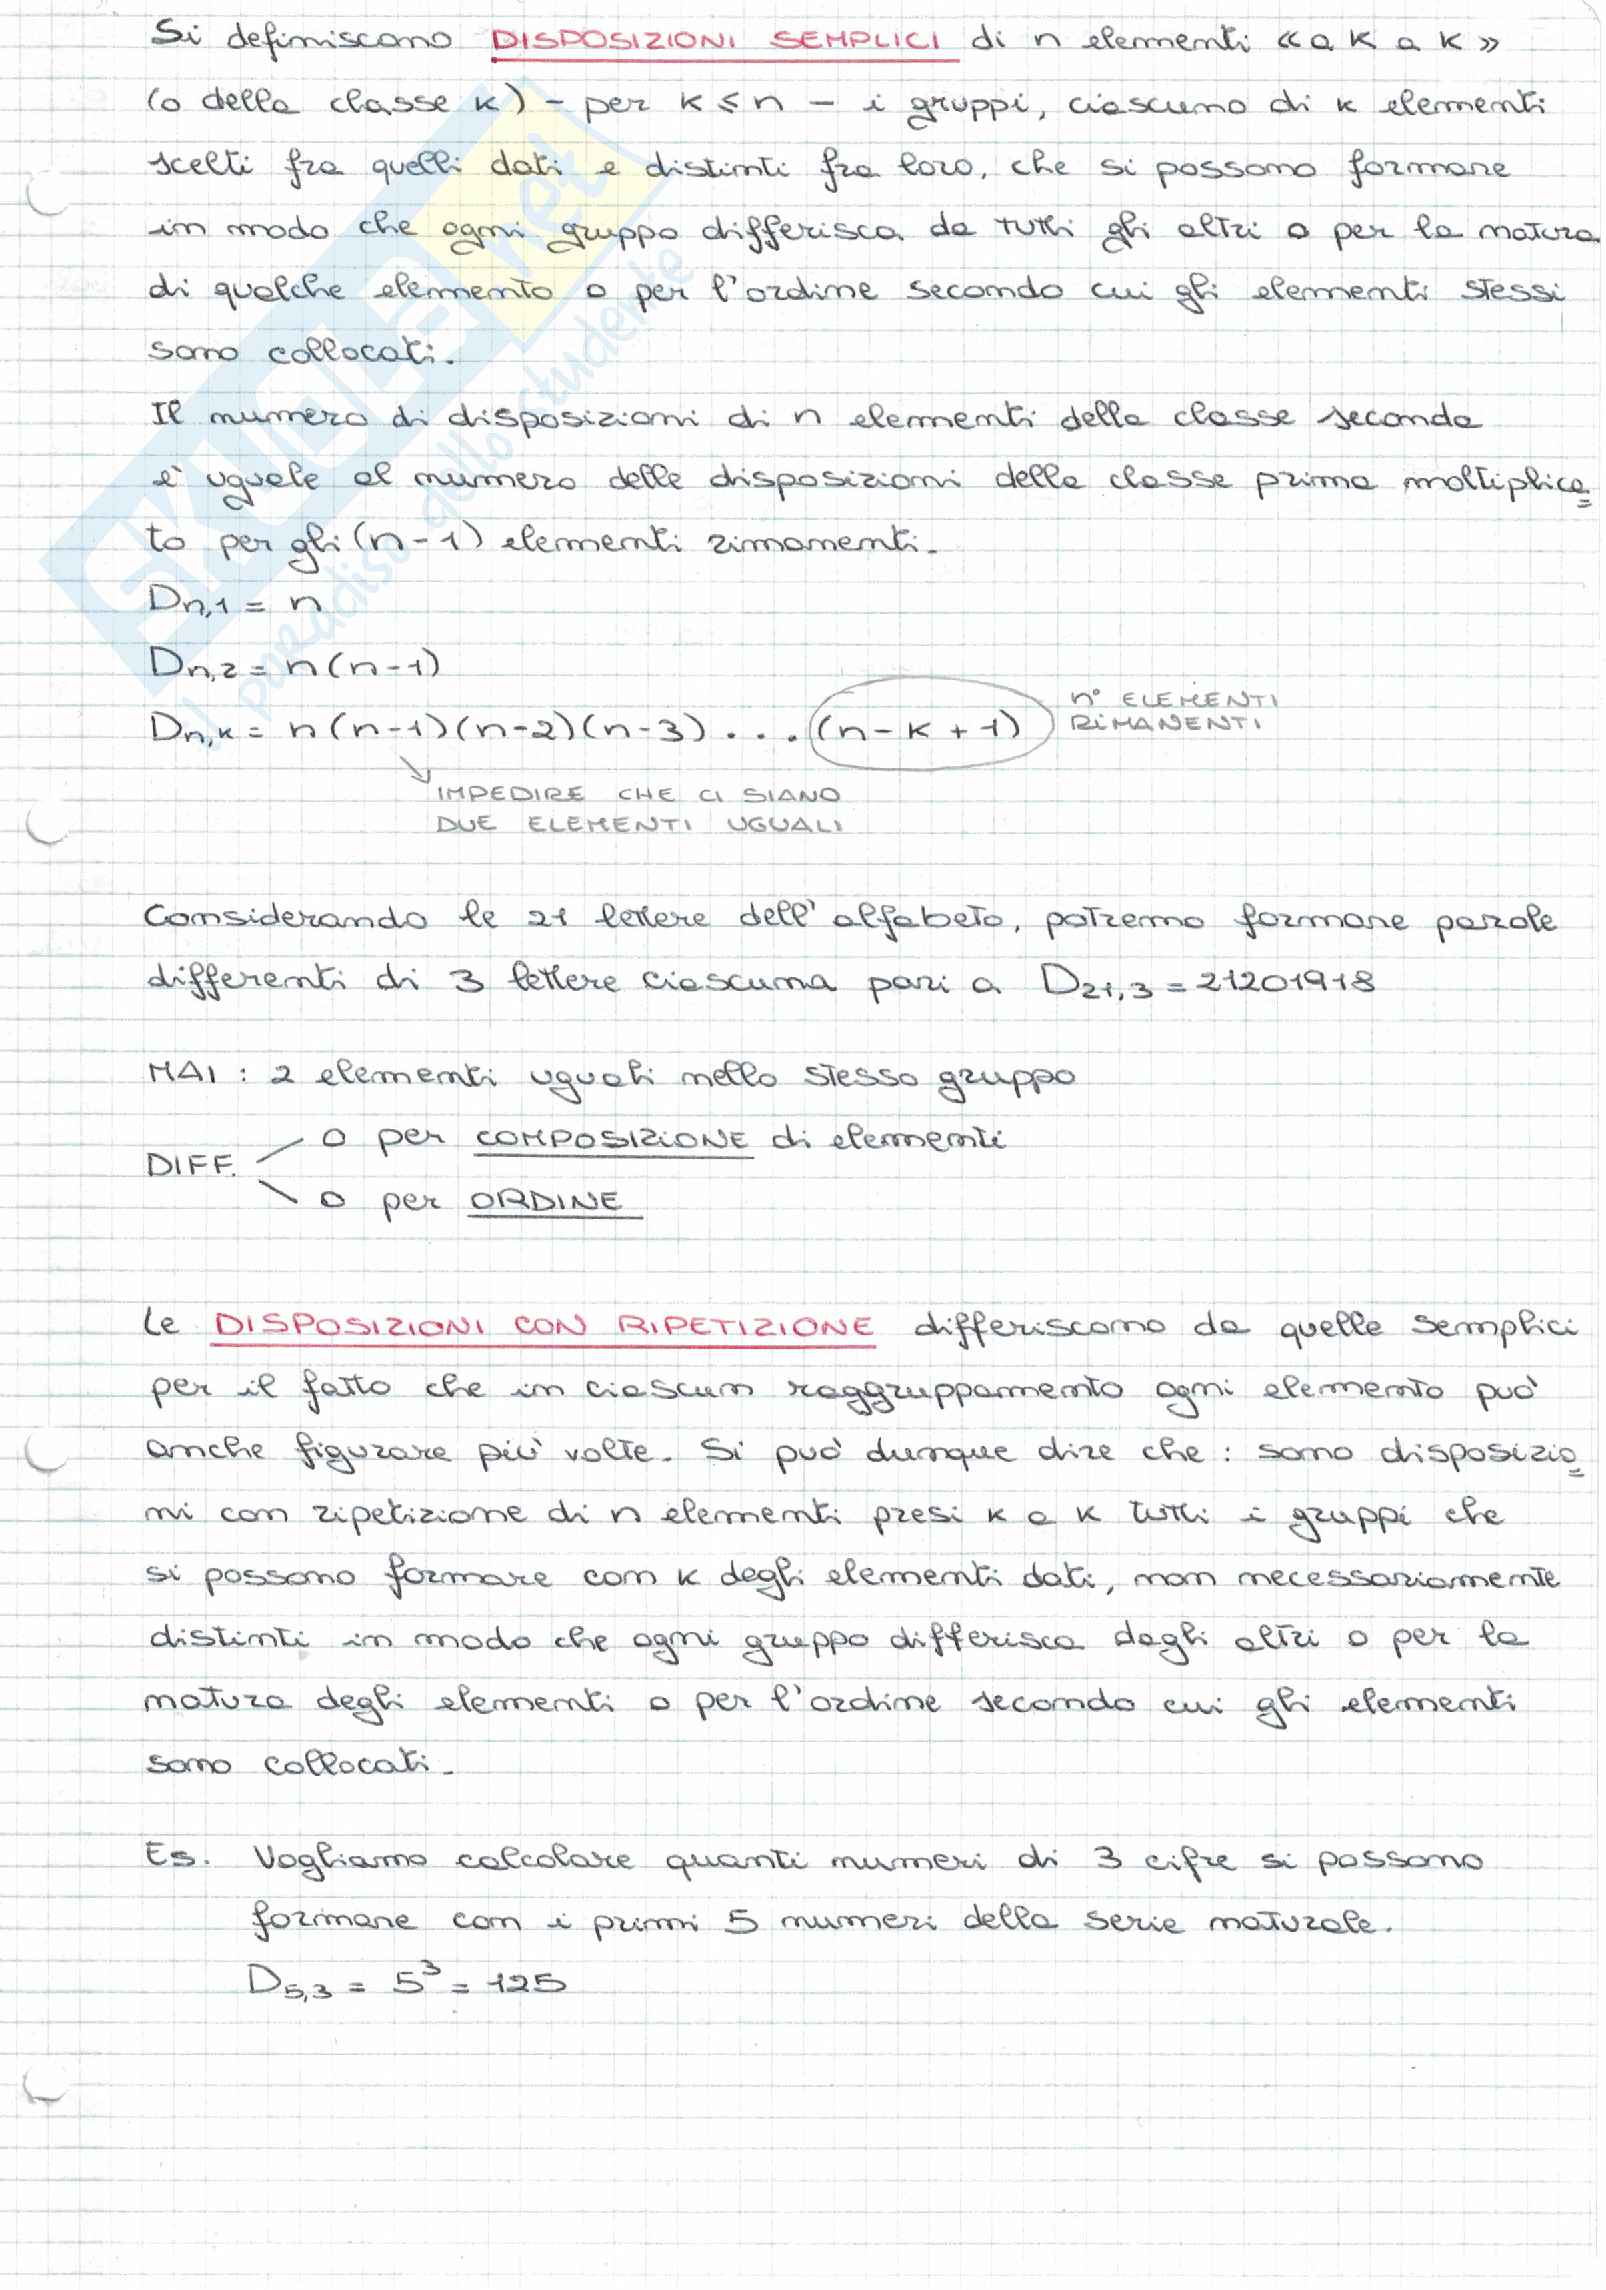 Si definiscono DISPOSIZIONI SEMPLICI di n elementi «a K a K»
(o della classe K) - per K ≤ n - i gruppi, ciascuno di K elementi
scelti fra quelli dati e distinti fra loro, che si possono formare
in modo che ogni gruppo differisca da tutti gli altri o per la natura
di qualche elemento o per l'ordine secondo cui gli elementi stessi
sono collocati.
Il numero di disposizioni di n elementi della classe seconda
e' uguale al numero delle disposizioni della classe prima moltiplica=
to per gli (n-1) elementi rimanenti.
Dn,1 = n
Dn,2 = n(n-1)
n° ELEMENTI
RIMANENTI
Dn,K = n(n-1)(n-2)(n-3)...(n-K+1)
IMPEDIRE CHE CI SIANO
DUE ELEMENTI UGUALI
Considerando le 21 lettere dell'alfabeto, potremo formare parole
differenti di 3 lettere ciascuna pari a D21,3 = 21201918
MAI: 2 elementi uguali nello stesso gruppo
o per COMPOSIZIONE di elementi
DIFF.
o per ORDINE
Le DISPOSIZIONI CON RIPETIZIONE differiscono da quelle semplici
per il fatto che in ciascun raggruppamento ogni elemento può
anche figurare più volte. Si può dunque dire che: sono disposizio=
ni con ripetizione di n elementi presi K a K tutti i gruppi che
si possono formare con K degli elementi dati, non necessariamente
distinti in modo che ogni gruppo differisca dagli altri o per la
natura degli elementi o per l'ordine secondo cui gli elementi
sono collocati.
Es. Vogliamo calcolare quanti numeri di 3 cifre si possono
formare con i primi 5 numeri della serie naturale.
D5,3 = 5³ = 125
SKUOLA.net
il paradiso dello studente